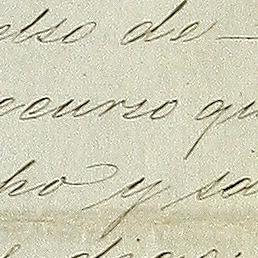 elso de
ecurso qu
ho y sa